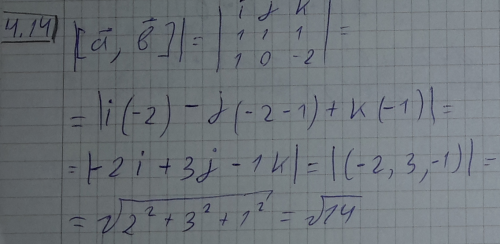 4.14
|[a⃗, b⃗]| = | i j k |
| 1 1 1 | =
| 1 0 -2 |
= |i(-2) - j(-2-1) + k(-1)| =
= |-2i + 3j - 1k| = |(-2, 3, -1)| =
= √(2² + 3² + 1²) = √14